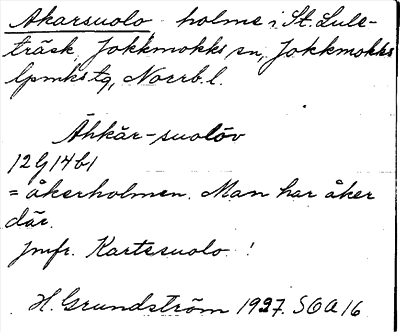 Akarsuolo holme i St. Lule-
träsk, Jokkmokks sn, Jokkmokks
lpmks tg, Norrb. l.
Åhkår-suolōv
12G14b1
= åkerholmen. Man har åker
där.
Jmfr. Kartesuolo!
H. Grundström 1927. SOA 16